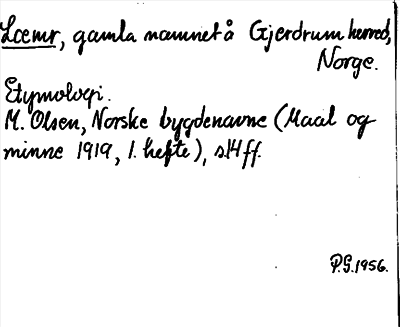 Lœmr, gamla namnet å Gjerdrum herred,
Norge.
Etymologi.
M. Olsen, Norske bygdenavne (Maal og
minne 1919, 1. hefte), s14 ff.
P.G. 1956.